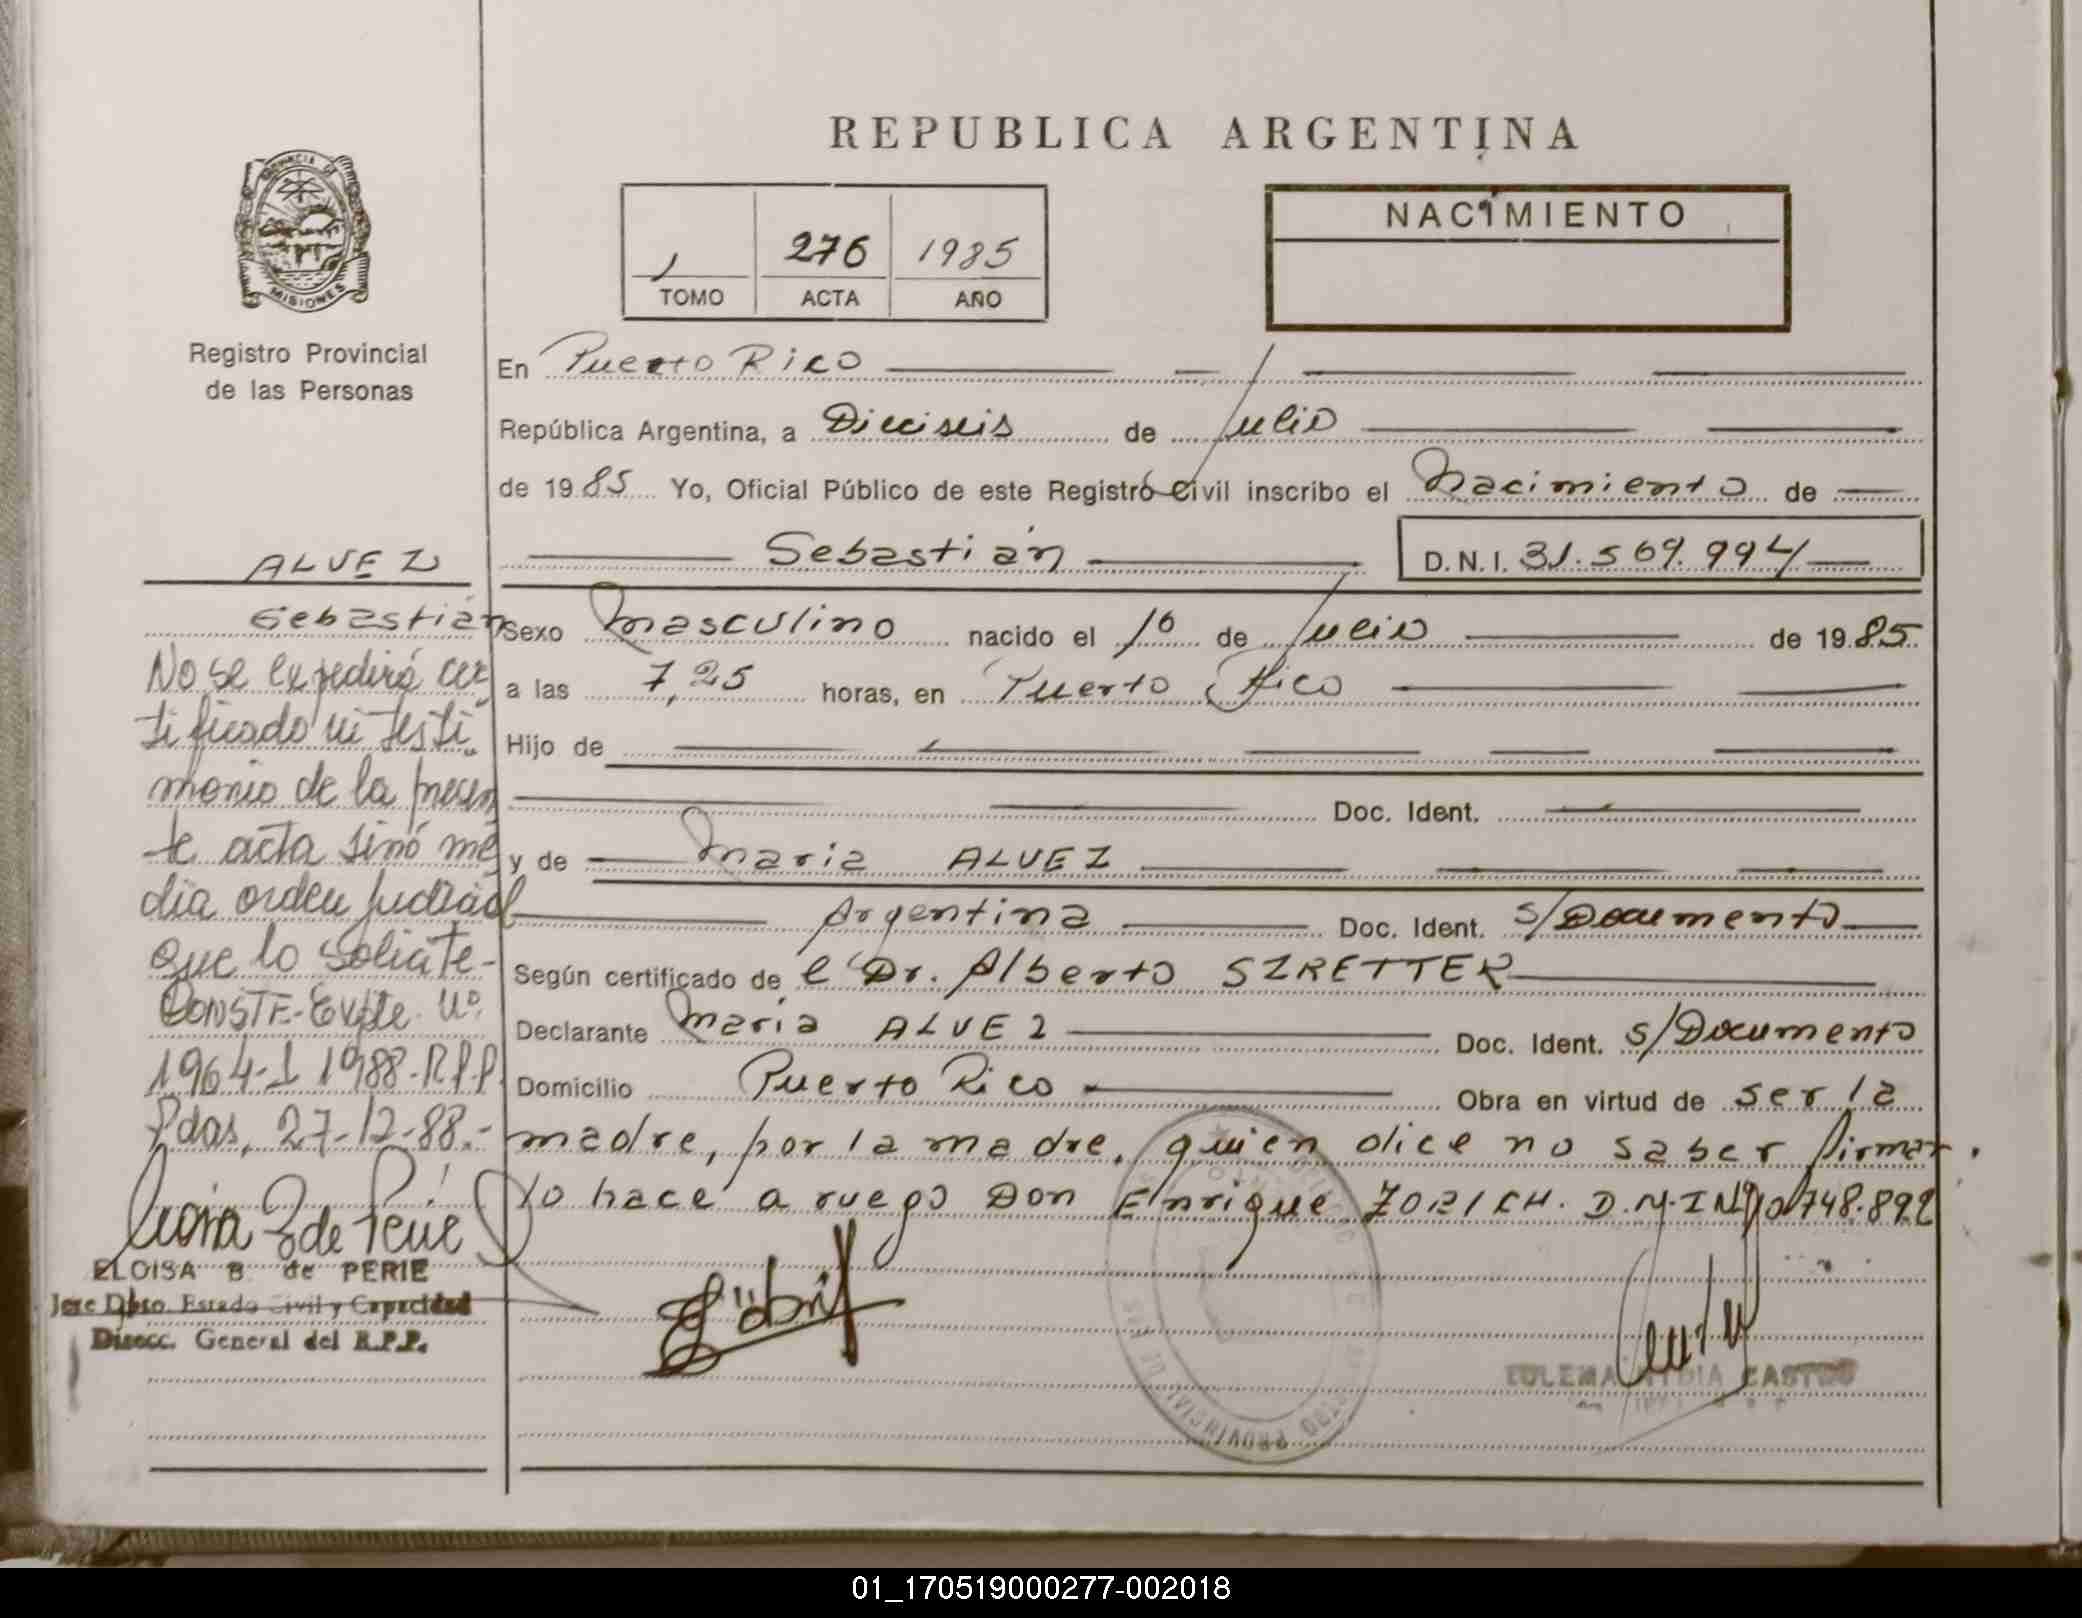 REPUBLICA ARGENTINA
PROVINCIA DE
MISIONES
Registro Provincial
de las Personas
1 276 1985
TOMO ACTA AÑO
NACIMIENTO
En Puerto Rico
República Argentina, a Dieciseis de Julio
de 1985 Yo, Oficial Público de este Registro Civil inscribo el Nacimiento de
Sebastián D.N.I. 31.569.994
Sexo Masculino nacido el 10 de Julio de 1985.
a las 7,25 horas, en Puerto Rico
Hijo de
Doc. Ident.
y de Maria ALVEZ
Argentina Doc. Ident. s/Documento
Según certificado de el Dr. Alberto SZRETTER
Declarante Maria ALVEZ Doc. Ident. s/Documento
Domicilio Puerto Rico Obra en virtud de ser la
madre, por la madre, quien dice no saber firmar.
lo hace a ruego Don Enrique ZORICH. D.N.I Nº 748.892
ALVEZ
Sebastián
No se expedirá cer
tificado ni testi
monio de la presen
te acta sinó me
dia orden judicial
que lo solicite-
CONSTE-Expte. Nº
1964-I 1988-R.P.P.
Pdas, 27-12-88.-
ELOISA B de PERIE
Jefe Dpto. Estado Civil y Capacidad
Direcc. General del R.P.P.
CASTRO
01_170519000277-002018